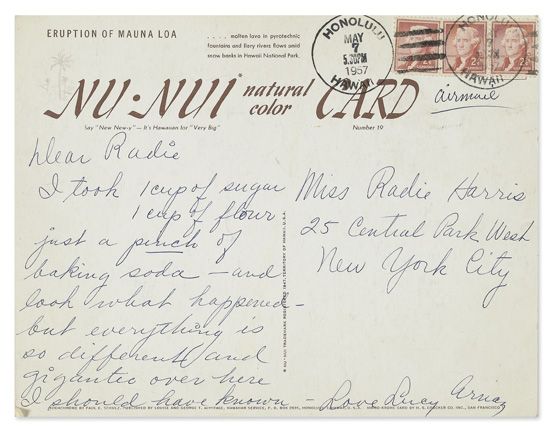 ERUPTION OF MAUNA LOA
. . . . molten lava in pyrotechnic
fountains and fiery rivers flows amid
snow banks in Hawaii National Park.
HONOLULU
MAY
7
5:30PM
1957
HAWAII
HONOLULU
HAWAII
2¢
2¢
2¢
airmail
NU·NUI natural color CARD
Say "New New-y" — It's Hawaiian for "Very Big"
Number 19
Dear Radie
I took 1 cup of sugar
1 cup of flour
just a pinch of
baking soda – and
look what happened –
but everything is
so different and
gigantic over here
I should have known – Love Lucy Arnaz
Miss Radie Harris
25 Central Park West
New York City
® NU-NUI TRADEMARK REGISTERED 1947, TERRITORY OF HAWAII, U.S.A.
KODACHROME BY PAUL E. SCHULZ. PUBLISHED BY LOUISE AND GEORGE T. ARMITAGE, HAWAIIAN SERVICE, P. O. BOX 2835, HONOLULU, U. S. A.
H. S. CROCKER CO. INC., SAN FRANCISCO